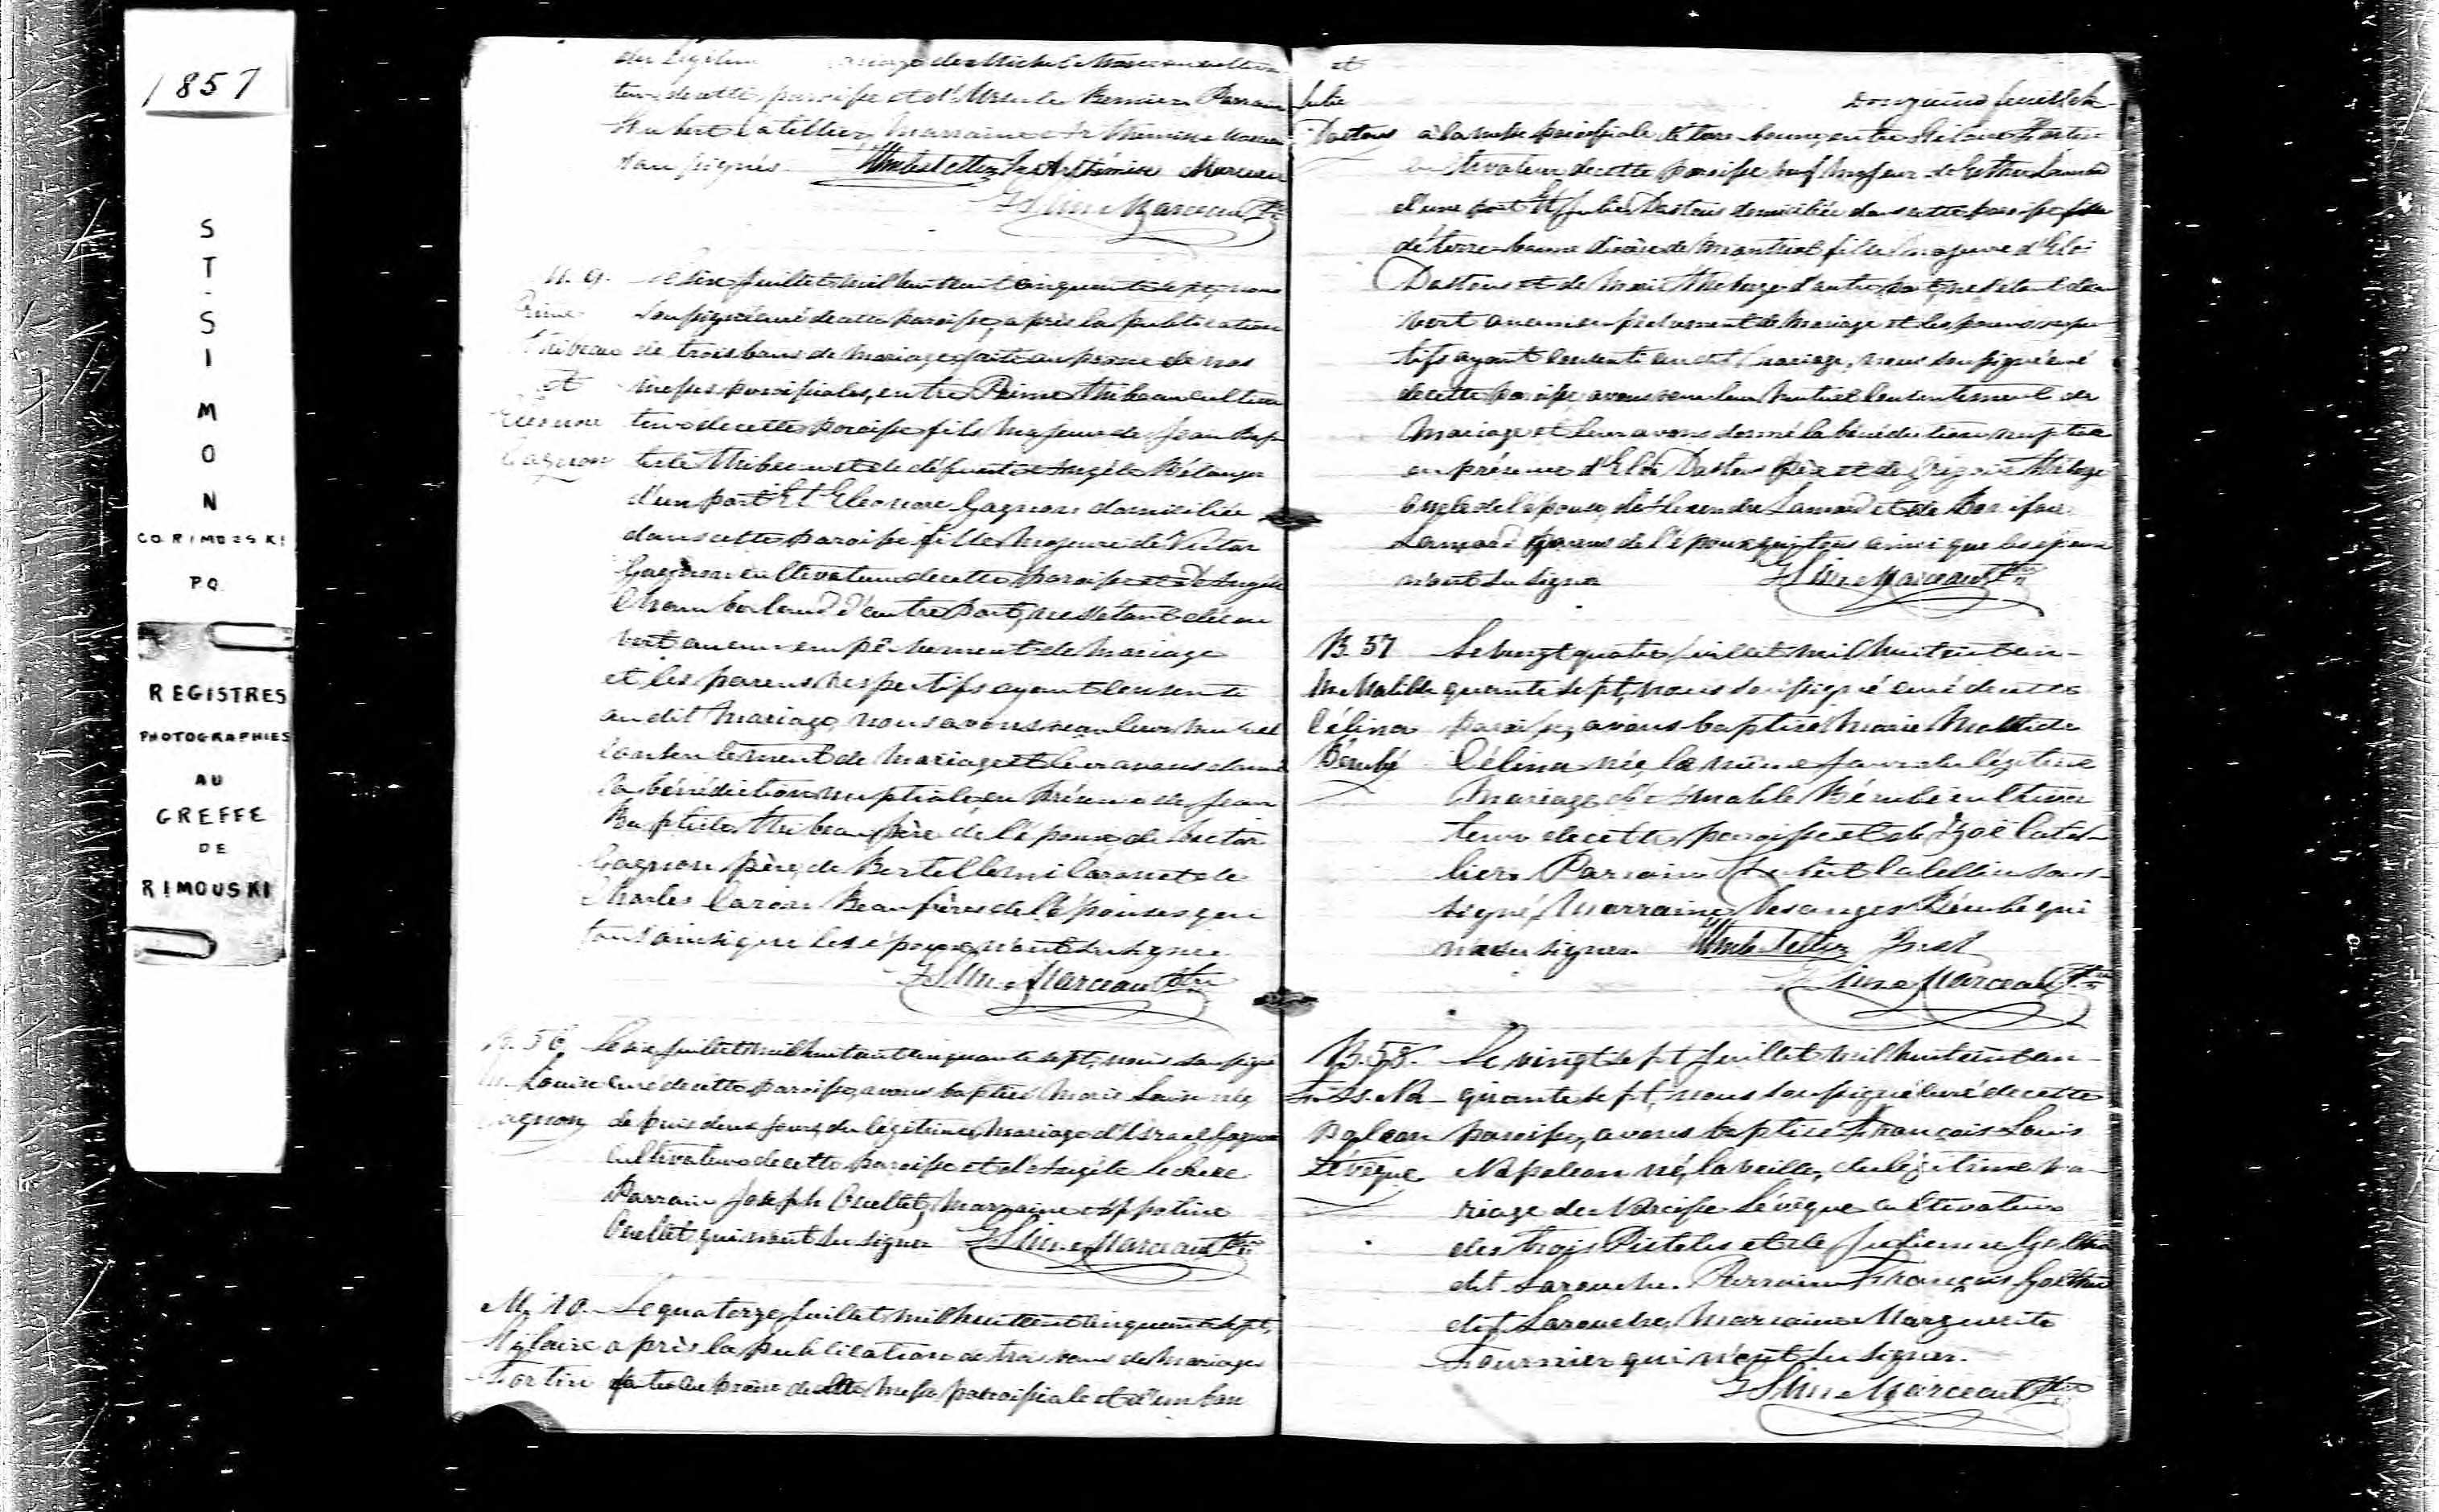 1857
ST-SIMON
CO. RIMOUSKI
PQ
REGISTRES
PHOTOGRAPHIES
AU
GREFFE
DE
RIMOUSKI
du légitime mariage de Michel Marceau cultiva
teur de cette paroisse et d'Ursule Bernier Parrain
Hubert Latellier, Marraine Arthémise Marceau
soussignés. Arthémise Marceau
Marceau Ptre
M. 9. Le six juillet mil huit cent cinquante sept, nous
Prime soussigné curé de cette paroisse, après la publication
Thibeau de trois bans de mariage faite au prône de nos
et messes paroissiales, entre Prime Thibeau cultiva
Eléonore teur de cette paroisse fils majeur de Jean Bap
Gagnon tiste Thibeau et de défunte Angèle Bélanger
d'un part Et Eleonore Gagnon domiciliée
dans cette paroisse fille majeure de Victor
Gagnon cultivateur de cette paroisse et d'Angèle
Chamberland d'autre part, ne s'étant décou
vert aucun empêchement de mariage
et les parens respectifs ayant consenti
au dit mariage, nous avons reçu leur mutuel
consentement de mariage et leur avons donné
la bénédiction nuptiale en présence de Jean
Baptiste Thibeau père de l'époux, de Victor
Gagnon père, de Bertellemi Caron et de
Charles Caron Beaufrères de l'épouse qui
tous ainsi que les époux n'ont su signer
Marceau Ptre
B. 56 Le six juillet mil huit cent cinquante sept, nous soussigné
M. Louise curé de cette paroisse, avons baptisé Marie Louise née
Gagnon depuis deux jours, du légitime mariage d'Israel Gagnon
cultivateur de cette paroisse et d'Angèle
Parrain Joseph Ouellet, Marraine Appoline
Ouellet qui n'ont su signer Marceau Ptre
M. 10. Le quatorze juillet mil huit cent cinquante sept,
Hylaire après la publication de trois bans de mariage
Fortin faite au prône de messe paroissiale et d'un ban
et douzième feuillet
Julie
Dastous à la messe paroissiale de terrebonne, entre Hilaire Fortin
cultivateur de cette paroisse veuf majeur de Esther Lamard
d'une part Et Julie Dastous domiciliée dans cette paroisse
de terrebonne diocèse de Montreal fille majeure d'Eloi
Dastous et de Marie Theberge d'autre part, ne s'étant décou
vert aucun empêchement de mariage et les parens respec
tifs ayant consenti au dit mariage, nous soussigné curé
de cette paroisse avons reçu leur mutuel consentement de
Mariage et leur avons donné la bénédiction nuptiale
en présence d'Eloi Dastous père et de Théberge
oncle de l'épouse, de Lamard et de
Lamard parens de l'époux qui tous ainsi que les époux
n'ont su signer Marceau Ptre
B. 57 Le vingt quatre juillet mil huit cent cin-
M. Matilde quante sept, nous soussigné curé de cette
Célina paroisse, avons baptisé Marie Matilde
Bérubé Célina née, le même jour du légitime
Mariage d'Amable Bérubé cultiva
teur de cette paroisse et de Zoë Latel-
lier Parrain Hubert Latellier sous-
signé, Marraine Desanges Bérubé qui
n'a su signer.
Marceau Ptre
B. 58. Le vingt sept juillet mil huit cent cin-
Frs. Ls. Na- quante sept, nous soussigné curé de cette
poleon paroisse, avons baptisé François Louis
Lévêque Napoleon né, la veille, du légitime ma
riage de Narcisse Lévêque cultivateur
des trois Pistoles et de Judienne
dit Larouche. Parrain François
dit Larouche, Marraine Marguerite
Fournier qui n'ont su signer.
Marceau Ptre